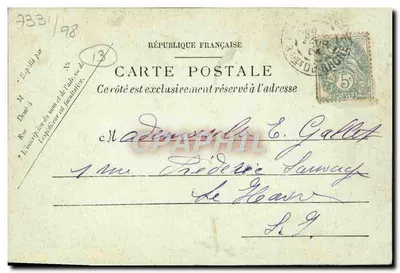 7331/98
13
* Expédié par
M
Demt à
Rue
No
* L'inscription du nom et de l'adresse de
l'expéditeur est facultative.
RÉPUBLIQUE FRANÇAISE
CARTE POSTALE
Ce côté est exclusivement réservé à l'adresse
5
Mademoiselle E. Gallet
1 rue Frédéric Sauvage
Le Havre
S. I